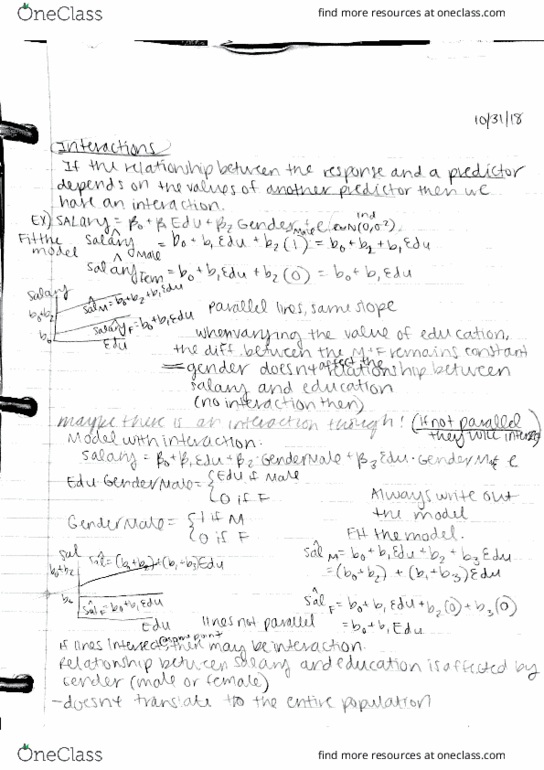 OneClass
find more resources at oneclass.com
10/31/18
Interactions
If the relationship between the response and a predictor
depends on the values of another predictor then we
have an interaction.
EX) SALARY = β0 + β1 Edu + β2 GenderMale + e ind e~N(0,σ²)
Fit the model salarŷ Male = b0 + b1 Edu + b2(1) = b0 + b2 + b1 Edu
salarŷ Fem = b0 + b1 Edu + b2(0) = b0 + b1 Edu
salary
b0+b2
salM = b0+b2+b1Edu
b0
salaryF = b0+b1Edu
Edu
parallel lines, same slope
when varying the value of education,
the diff between the M+F remains constant
= gender doesn't affect the relationship between
salary and education
(no interaction then)
maybe there is an interaction though! (if not parallel they will intersect)
Model with interaction:
salary = β0 + β1 Edu + β2 · GenderMale + β3 Edu · GenderM + e
Edu · GenderMale = { Edu if Male
0 if F
GenderMale = { 1 if M
0 if F
Always write out
the model
Fit the model.
sal̂ M = b0 + b1 Edu + b2 + b3 Edu
= (b0 + b2) + (b1 + b3) Edu
sal̂ F = b0 + b1 Edu + b2(0) + b3(0)
= b0 + b1 Edu
sal
b0+b2
sal̂ = (b0+b2)+(b1+b3)Edu
b0
sal̂F = b0+b1Edu
Edu
lines not parallel
if lines intersect @ some point then may be interaction.
Relationship between salary and education is affected by
Gender (male or female)
- doesn't translate to the entire population
OneClass
find more resources at oneclass.com